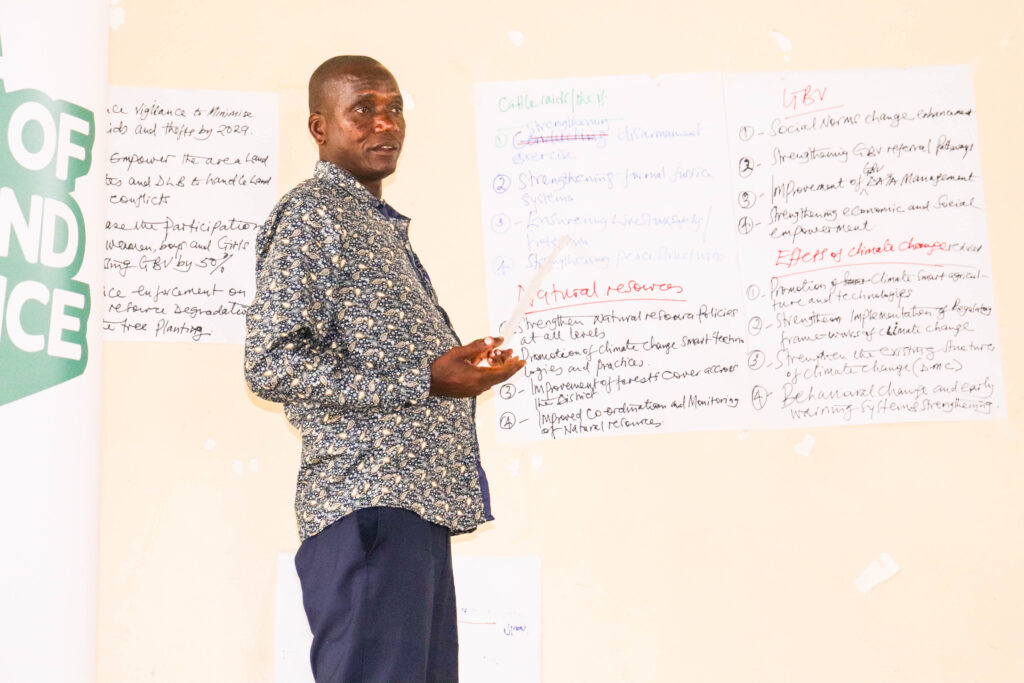 OF
ND
NCE
nce vigilance to Minimise
ids and thefts by 2029.
Empower the area Land
tes and DLB to handle Land
conflicts
ase the Participation
women, boys and Girls
sing GBV by 50%
ice enforcement on
resource Degradation
e tree Planting.
Cattle raids/theft
① Strengthening
disarmament
exercise
② Strengthening formal Justice
systems
③ - Ensuring Livestock
④. Strengthening peace structures
Natural resources
Strengthen Natural resource Policies
at all levels
Promotion of climate change smart techno
logies and practices.
③ - Improvement of forests cover accross
the District
④ - Improved Co-ordination and Monitoring
of Natural resources.
GBV
① - Social Norms change enhancement
② - Strengthening GBV referral pathways
③ - Improvement of GBV DATA Management
④ - Strengthening economic and Social
empowerment
Effects of climate change
① - Promotion of climate smart agricul-
ture and technologies
② - Strengthen Implementation of Regulatory
frame works of climate change
③ - Strengthen the existing structures
of climate change (DDMC)
④ - Behavioral change and early
warning systems strengthening.